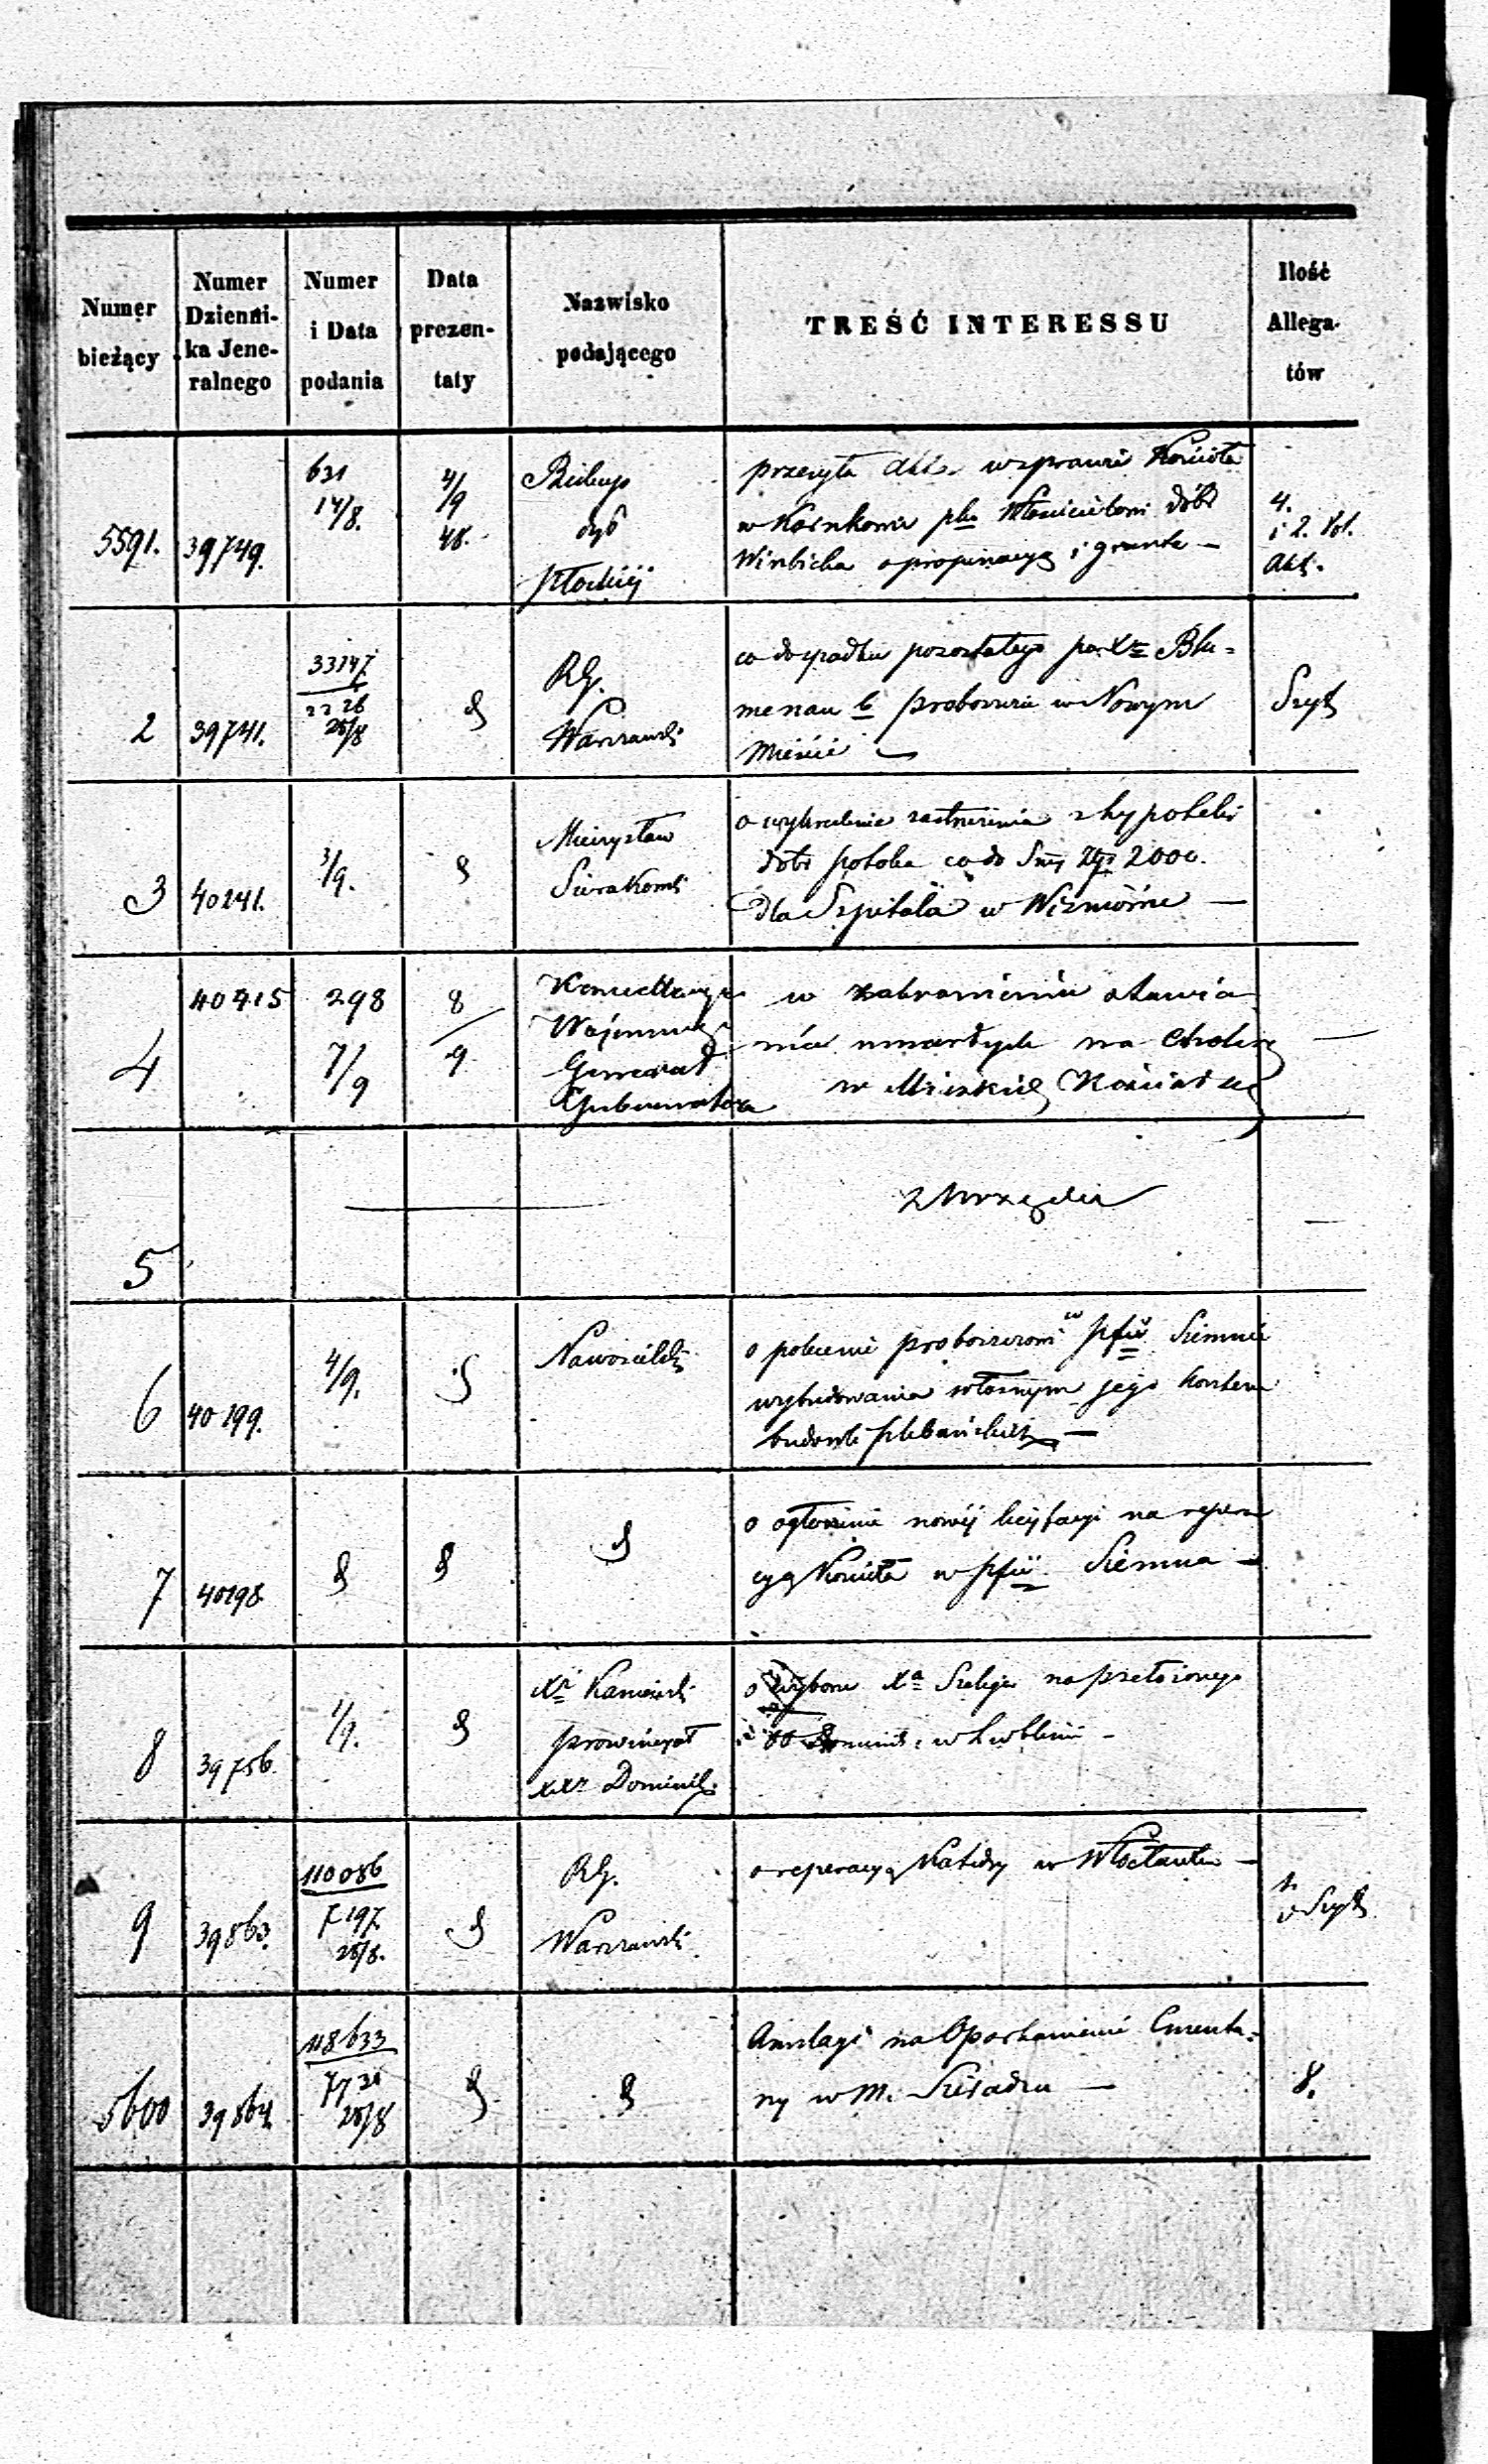 Numer bieżący | Numer Dzienni-ka Jene-ralnego | Numer i Data podania | Data prezen-taty | Nazwisko podającego | TREŚĆ INTERESSU | Ilość Allega-tów
5591. | 39749. | 631 14/8. | 4/9 48. | Biskup dyó Płockiéj | przesyła akta w sprawie Kościoła
w pko Właścicielom dóbr
o propinacyą i grunta — | 4. i 2. Vol. Akt.
2 | 39741. | 33147. 25/8 | d | RG. Warszawski | co do spadku pozostałego po Xr Blu=
menau b proboszczu w Nowym
Mieście — | Szyt
3 | 40241. | 3/9. | d | Mieczysław Sierakowski | o wykreślenie zastrzeżenia z hypoteki
dóbr co do Smy Złp 2000.
dla Szpitala w —
4 | 40415 | 298 7/9 | 8/9 | Wojennego Generał Gubernatora | w zabronieniu stawia
nia umarłych na Cholerę
w Kościołach | —
5 | — | z Urzędu | —
6 | 40199. | 4/9. | d | o polecenie proboszczowi w pfii Siemnie
wybudowania własnym jego kosztem
budowli plebańskiéj —
7 | 40198. | d | d | d | o ogłoszenie nowéj licytacyi na repera
cyą Kościoła w pfii Siemna —
8 | 39756. | 1/9. | d | Xr Kamiński prowincyał XXr Dominik. | o wyborze Xa Szeliga na przełożonego
w Lublinie —
9 | 39863. | 110086 7197. 28/8. | d | RG. Warszawski | o reperacyą Katedry w Włocławku — | Szyt
5600 | 39864. | 118633 7731 28/8 | d | d | Anszlagi na Oparkanienie Cmenta=
rzy w M. Sieradzu — | 8.